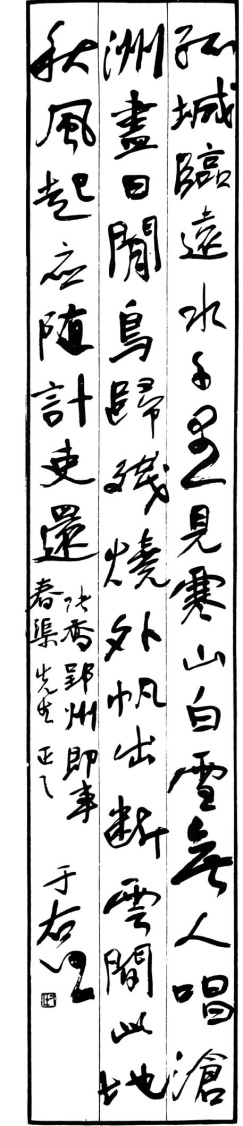 孤城臨遠水千里見寒山白雪無人唱滄
洲盡日閒鳥歸殘燒外帆出斷雲間此地
秋風起应随計吏還
張喬郢州即事
春渠先生正之
于右任